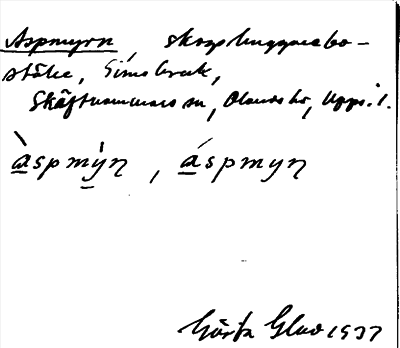 Aspmyrn, skogshuggarebo-
ställe, Gimobruk,
Skäfthammars sn, Olands hd, Upps. l.
àspmýn, áspmyn
Gösta 1937